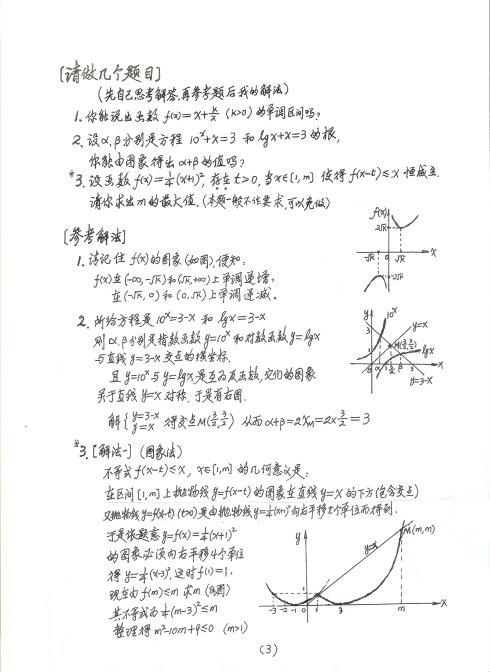 [请做几个题目]
(先自己思考解答,再参考题后我的解法)
1. 你能说出函数 f(x)=x+k/x (k>0) 的单调区间吗?
2. 设α,β分别是方程 10^x+x=3 和 lgx+x=3 的根,
你能由图象得出 α+β 的值吗?
*3. 设函数 f(x)=1/4(x+1)², 存在 t>0, 当 x∈[1,m] 使得 f(x-t)≤x 恒成立.
请你求出 m 的最大值. (本题一般不作要求,可以免做)
[参考解法]
1. 请记住 f(x) 的图象 (如图),便知:
f(x)在(-∞,-√k)和(√k,+∞)上单调递增,
在(-√k,0)和(0,√k)上单调递减.
f(x)
2√k
-√k
0
√k
x
-2√k
2. 所给方程是 10^x=3-x 和 lgx=3-x
则 α,β分别是指数函数 y=10^x 和对数函数 y=lgx
与直线 y=3-x 交点的横坐标.
且 y=10^x 与 y=lgx 是互为反函数,它们的图象
关于直线 y=x 对称. 于是有右图.
解{y=3-x y=x 得交点 M(3/2,3/2) 从而 α+β=2x_M=2×3/2=3
y
10^x
y=x
3
M(3/2,3/2)
lgx
1
α
0
1
β
3
x
y=3-x
*3. [解法一] (图象法)
不等式 f(x-t)≤x, x∈[1,m] 的几何意义是:
在区间[1,m]上抛物线 y=f(x-t) 的图象在直线 y=x 的下方(包含交点)
又抛物线 y=f(x-t) (t>0) 是由抛物线 y=1/4(x+1)² 向右平移 t 个单位而得到.
于是依题意 y=f(x)=1/4(x+1)²
的图象必须向右平移4个单位
得 y=1/4(x-3)², 这时 f(1)=1,
现在由 f(m)≤m 求 m (见图)
其不等式为 1/4(m-3)²≤m
整理得 m²-10m+9≤0 (m>1)
y
y=x
M(m,m)
1
-3 -2 -1 0 1 3 m x
(3)